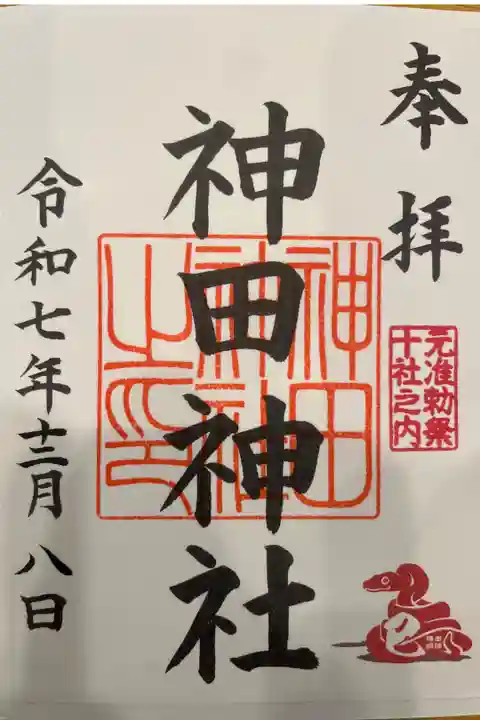 奉拝
元准勅祭
十社之内
巳
神田神社
神田神社之印
令和七年十二月八日